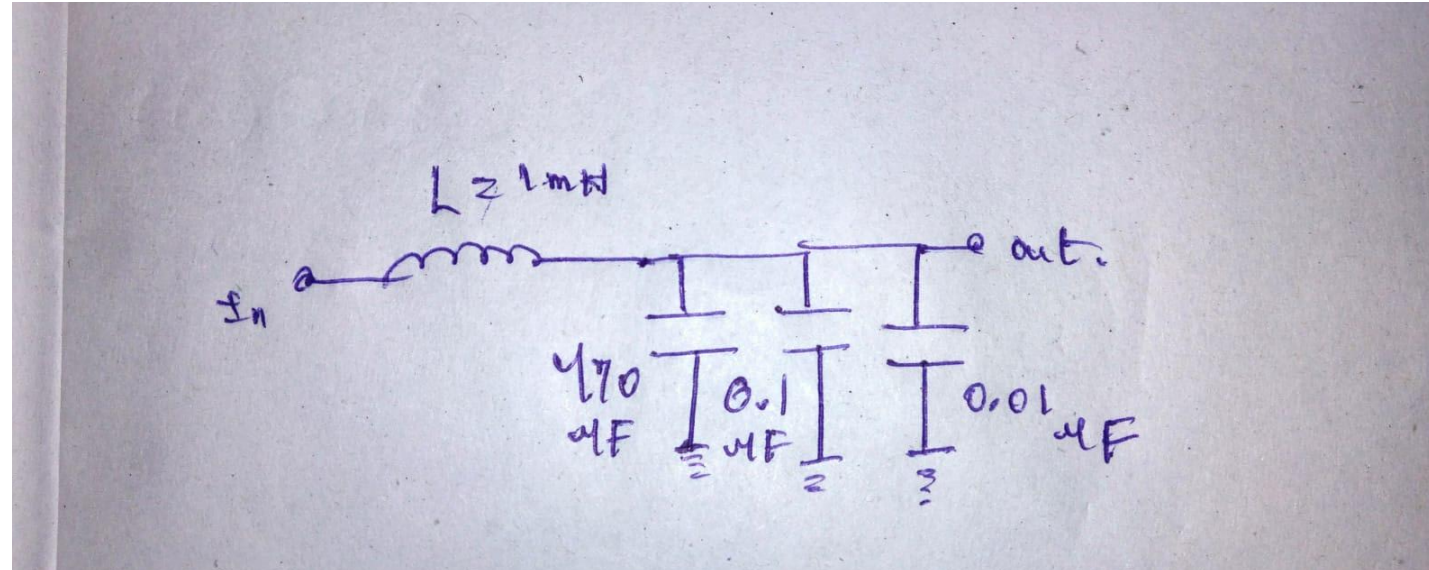 L = 1mH
In
out.
470
μF
0.1
μF
0.01
μF